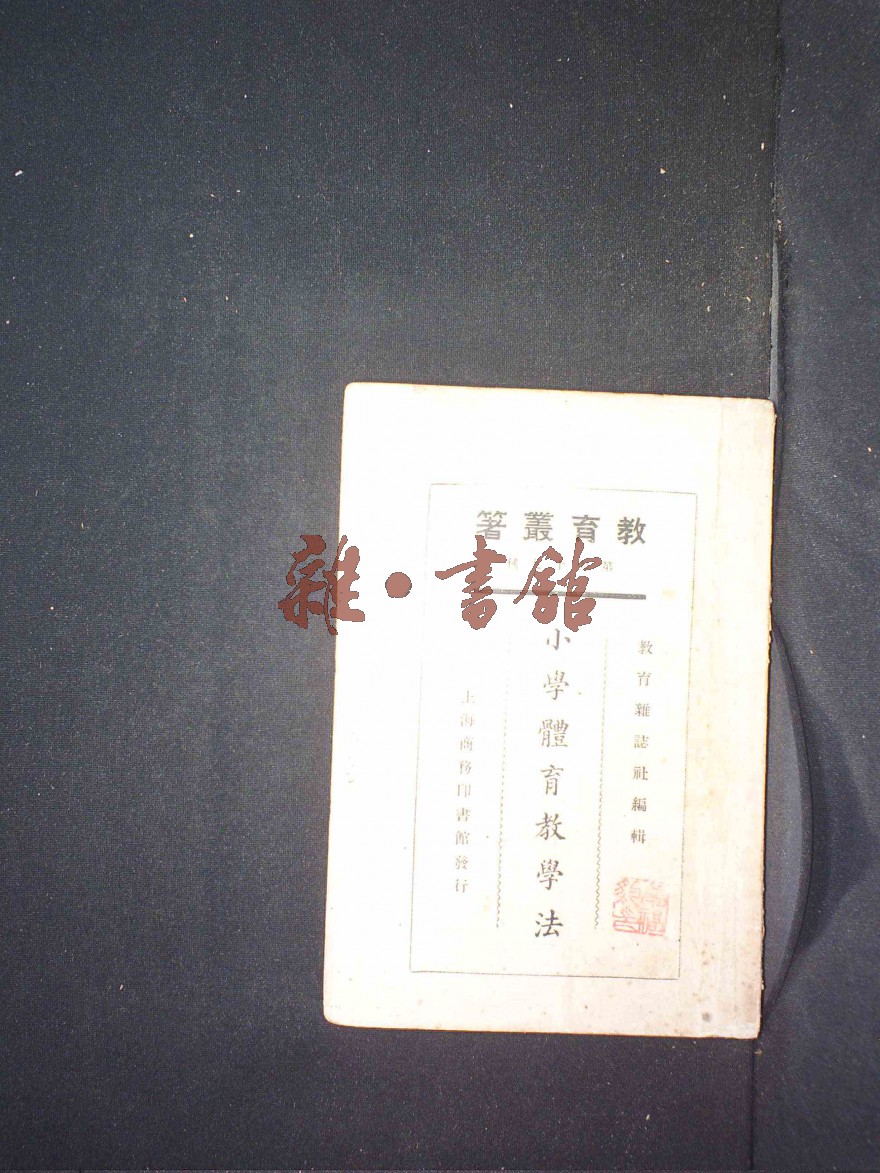 教育叢著
第 種
教育雜誌社編輯
小學體育教學法
上海商務印書館發行
雜·書館